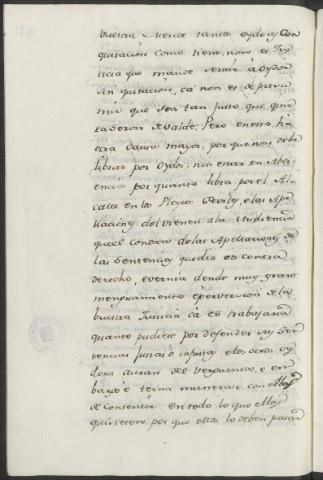 Vuestra Merced tantos oydores con
quitacion como tiene, non es Jus
ticia que mande servir à Oydor
sin quitacion, cà non es de presu
mir que sea tan justo que quie
ra servir devalde; Pero en esto hi
ciera causa mayor, porque non debe
librar por Oydor, nin entrar en Audi
encia por quanto libra por el Al
calle en los Pleytos Civiles, e las Ape
laciones del vienen a la Audiencia
que el Conosca de las Apelaciones de
las Sentencias que diò es contra
derecho, e vernia dende muy grave
menguamiento è perversion de la
vuestra Justicia cà el trabajaria
quanto pudiere por defender sus Sen
tencias justas ò injustas, e los otros oy
dores avrian del verguenza, e em
bargo è ternia manera con ellos
de Consentir en todo lo que ellos
quisieren, por que ellos lo deben pasar